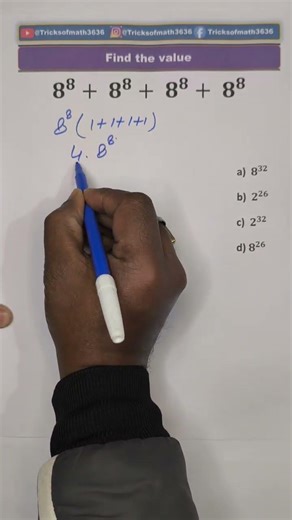 @Tricksofmath3636 @Tricksofmath3636 Tricksofmath3636
Find the value
8⁸ + 8⁸ + 8⁸ + 8⁸
8⁸ (1+1+1+1)
4. 8⁸
a) 8³²
b) 2²⁶
c) 2³²
d) 8²⁶